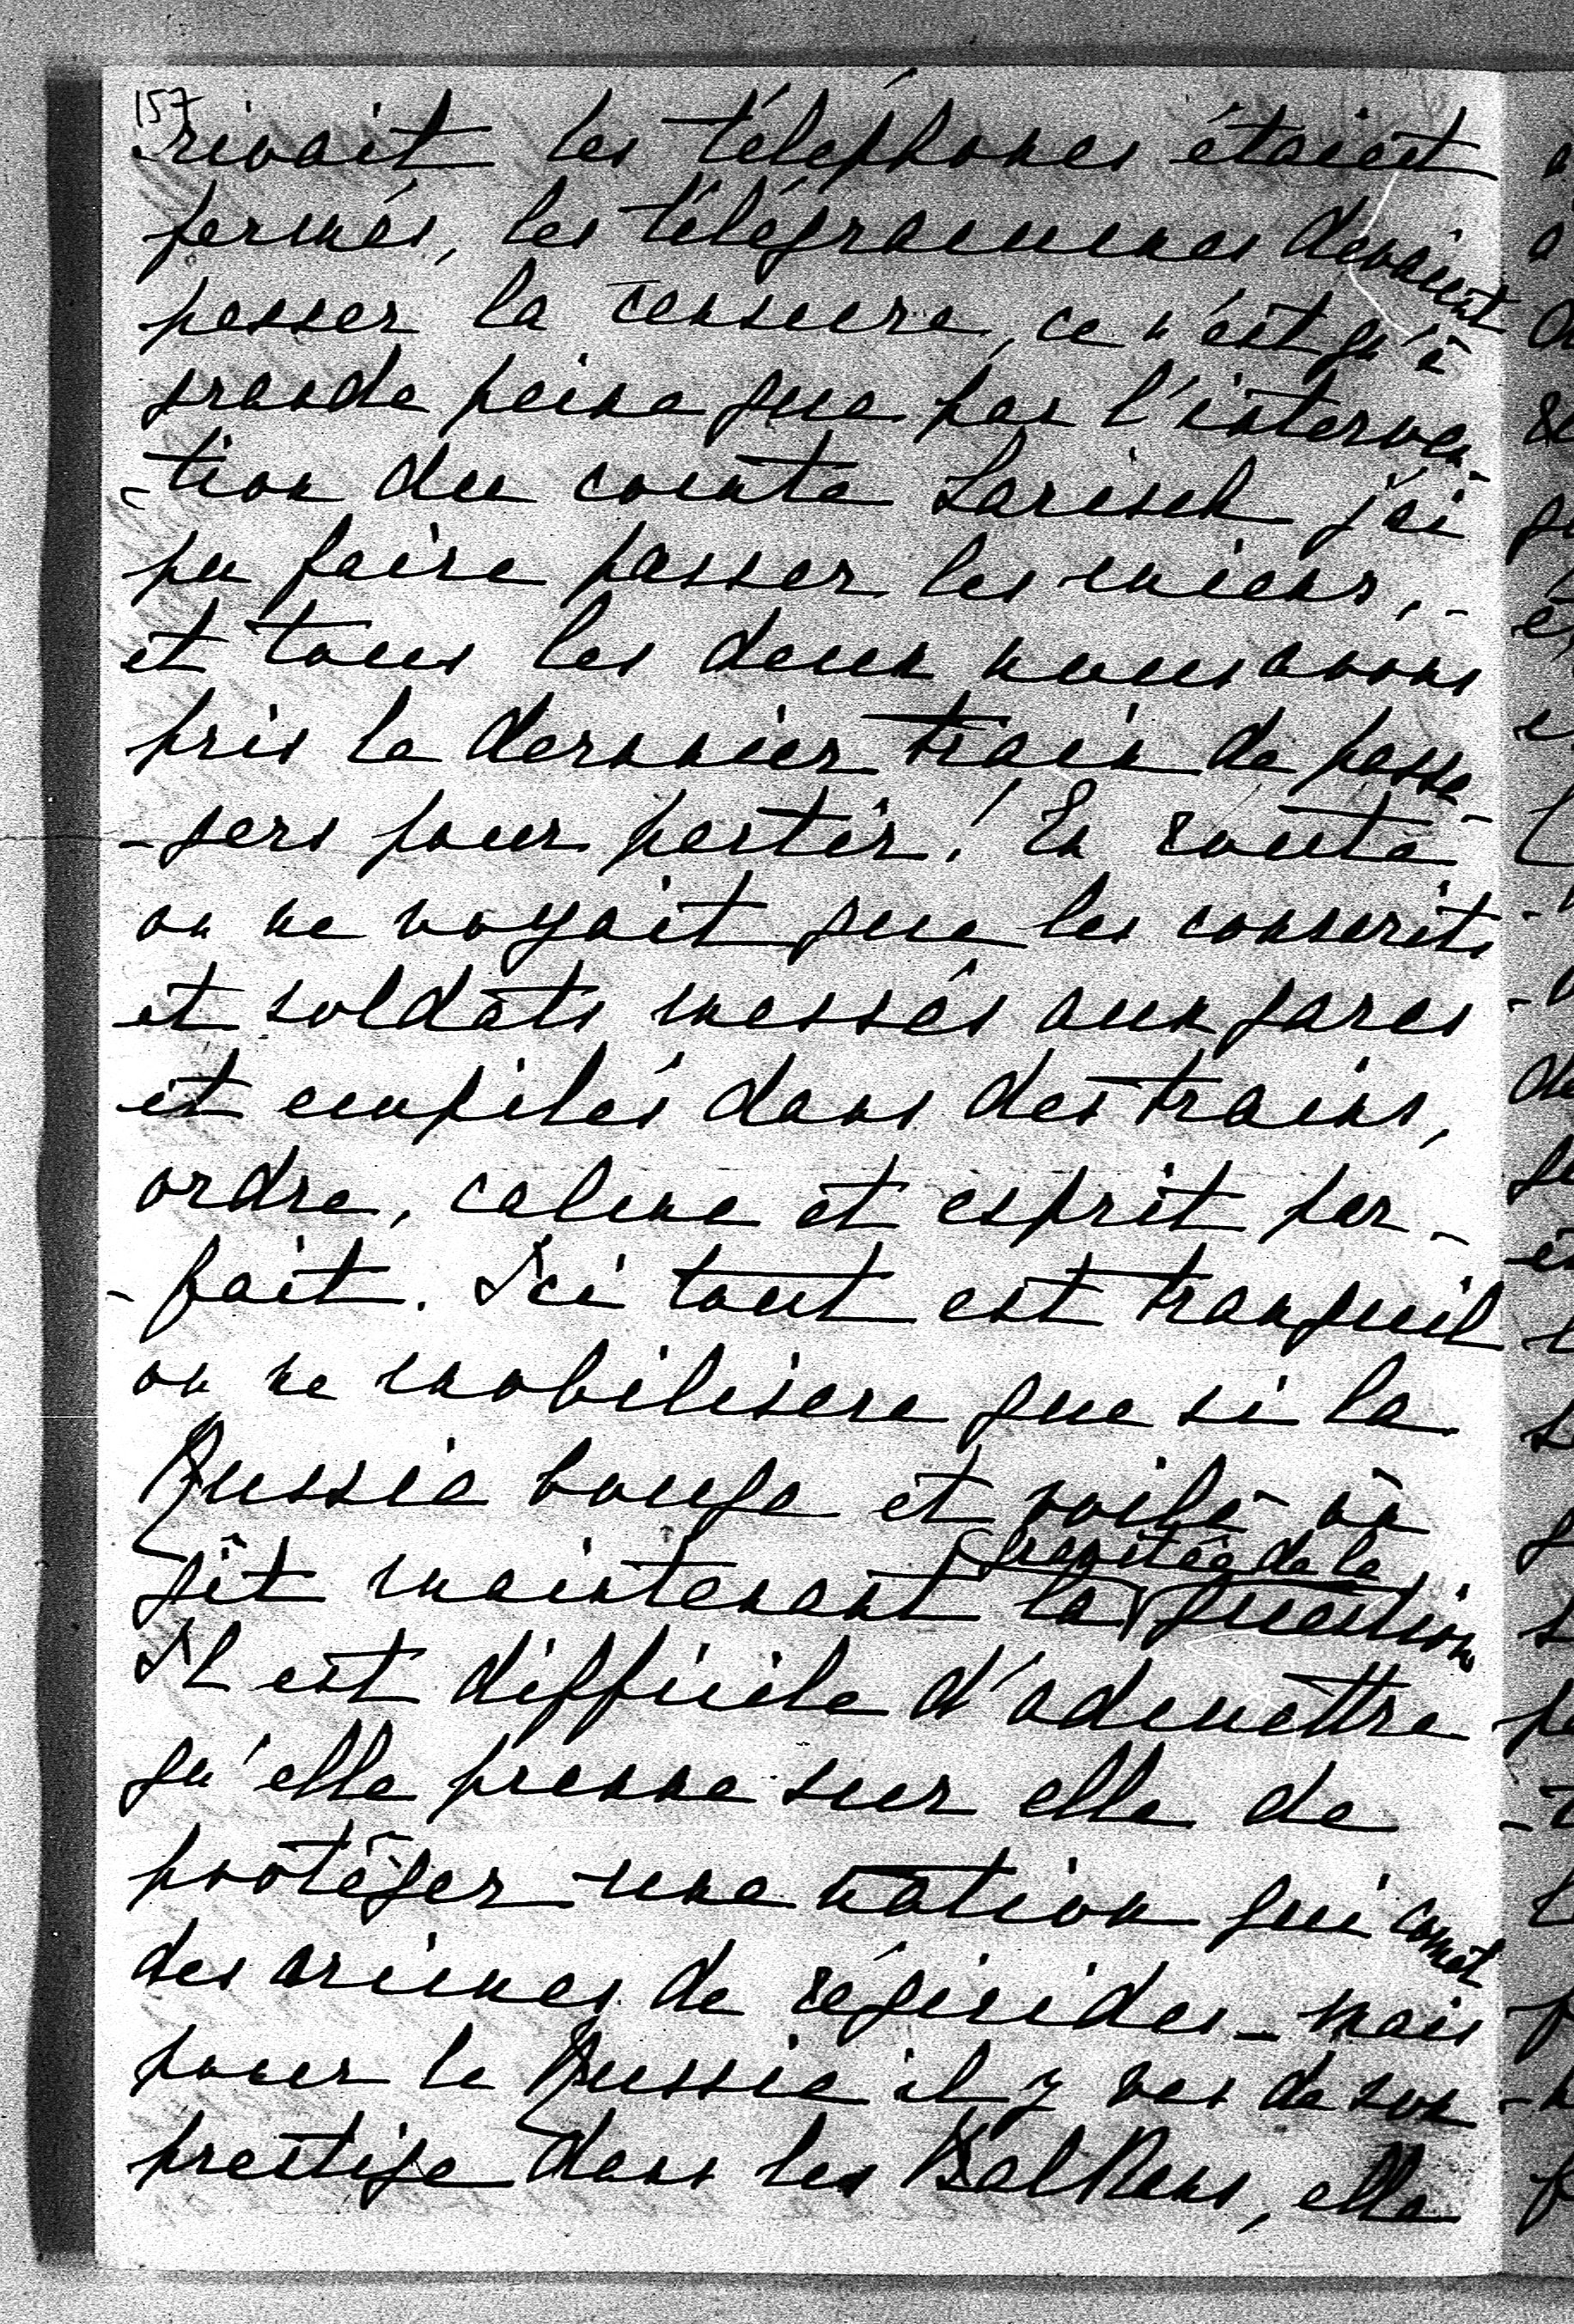 157
rivait les téléphones étaient
fermés, les télégrammes devaient
passer la censure, ce n'est qu'à
grande peine que par l'interven-
-tion du comte Larisch j'ai
pu faire passer les miens, -
et tous les deux nous avons
pris le dernier train de passa-
-gers pour partir! En route
on ne voyait que les conscrits
et soldats massés aux gares
et empilés dans des trains,
ordre, calme et esprit par-
-fait. Ici tout est tranquil
on ne mobilisera que si la
Russie bouge et voilà où
gravitée de la
gît maintenant la question
Il est difficile d'admettre
qu'elle prenne sur elle de
protéger une nation qui comet
des crimes de régicides - mais
pour la Russie il y vas de son
prestige dans les Balkans, elle